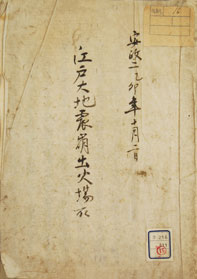 安政二乙卯年十月二日
江戸大地震崩出火場所